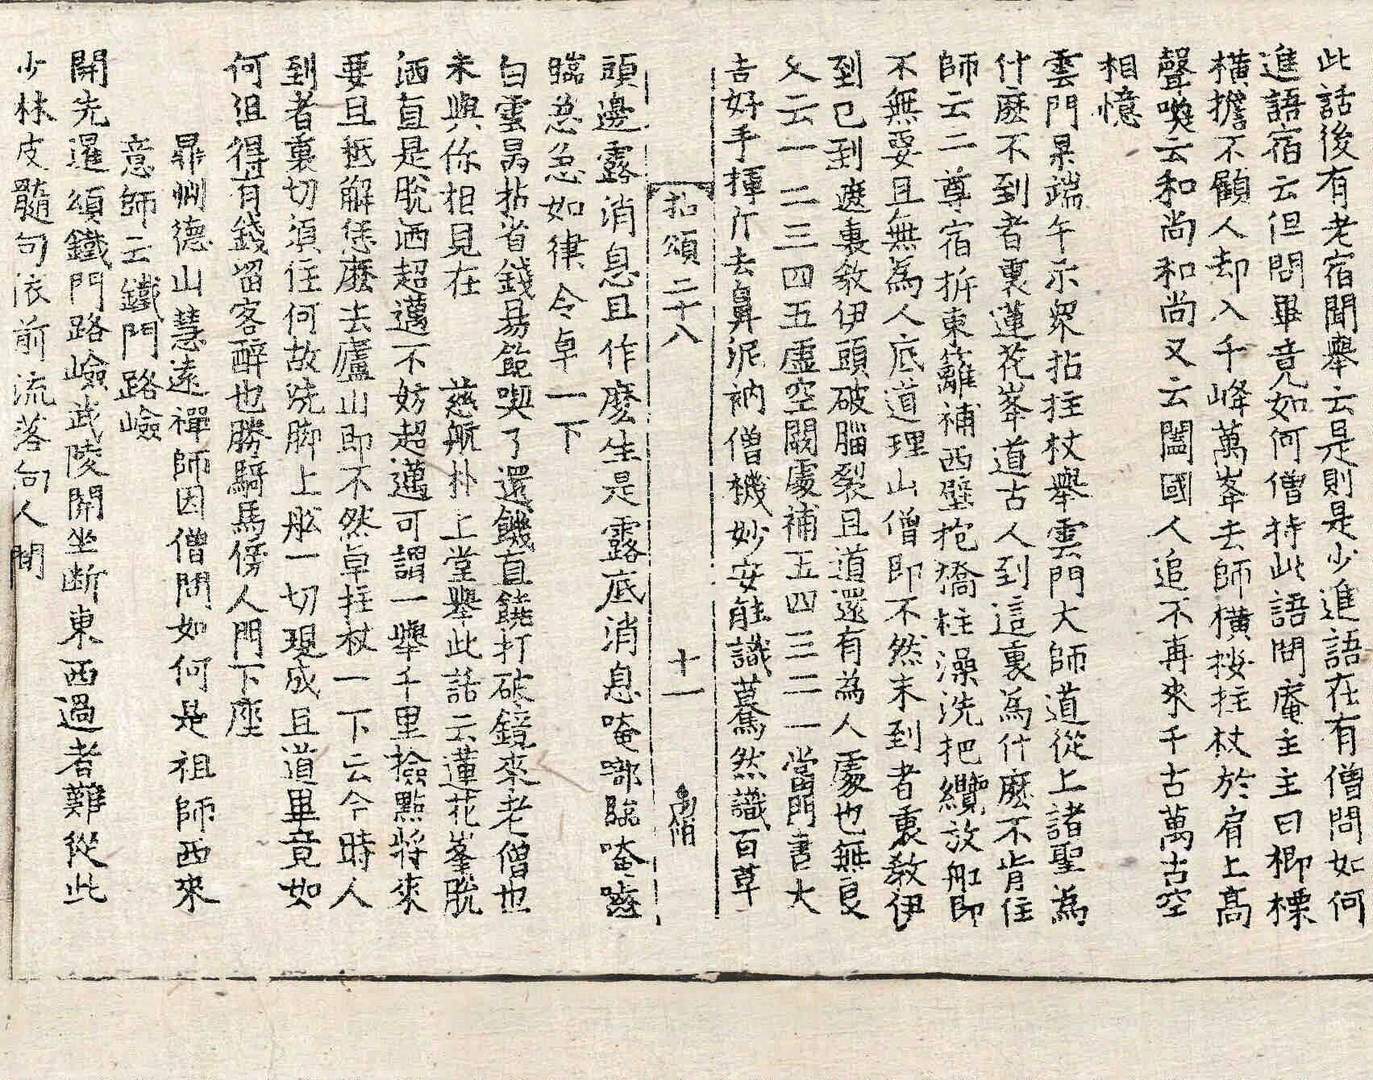 此話後有老宿聞舉云是則是少進語在有僧問如何
進語宿云但問畢竟如何僧持此語問庵主主曰楖𣗖
橫擔不顧人却入千峰萬峯去師橫按拄杖於肩上高
聲喚云和尚和尚又云闔國人追不再來千古萬古空
相憶
雲門杲端午示衆拈拄杖舉雲門大師道從上諸聖爲
什麽不到者裏蓮花峯道古人到這裏爲什麽不肯住
師云二尊宿拆東籬補西壁抱橋柱澡洗把纜放舡即
不無要且無爲人底道理山僧即不然未到者裏敎伊
到已到遮裏敎伊頭破腦裂且道還有爲人處也無良
久云一二三四五虛空闕處補五四三二一當門書大
吉好手揮斤去鼻泥衲僧機妙安能識驀然識百草
拈頌二十八 十一
頭邊露消息且作麽生是露底消息唵𠸪臨唵嚂
臨急急如律令卓一下
白雲昺拈省錢易飽喫了還饑直饒打破鏡來老僧也
未與你相見在 慈航朴上堂擧此話云蓮花峯脫
洒直是脫洒超邁不妨超邁可謂一擧千里撿點將來
要且秪解恁麽去廬山即不然卓拄杖一下云今時人
到者裏切須住何故洗脚上舩一切現成且道畢竟如
何但得有錢留客醉也勝騎馬傍人門下座
鼎州德山慧遠禪師因僧問如何是祖師西來
意師云鐵門路嶮
開先暹頌鐵門路嶮武陵開坐斷東西過者難從此
少林皮髓句依前流落向人閒